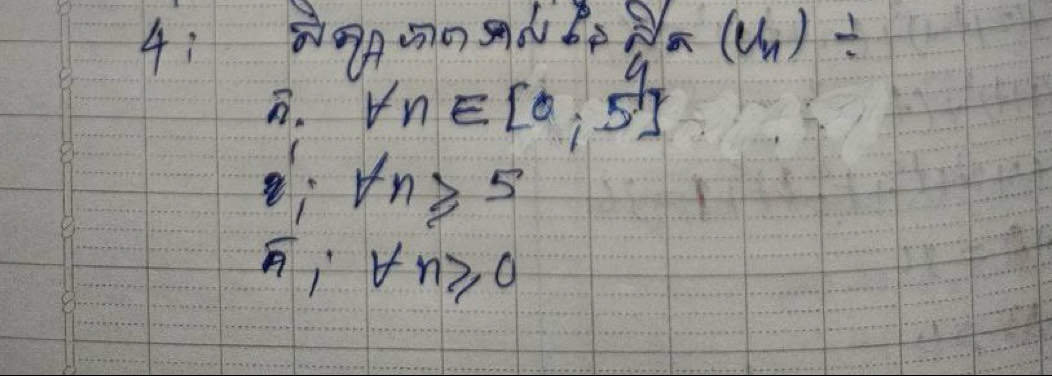 4; សិក្សាភាពទាល់នៃស្វ៊ីត (Un) ÷
ក. ∀n ∈ [0; 5]
ខ; ∀n ≥ 5
គ; ∀n ≥ 0